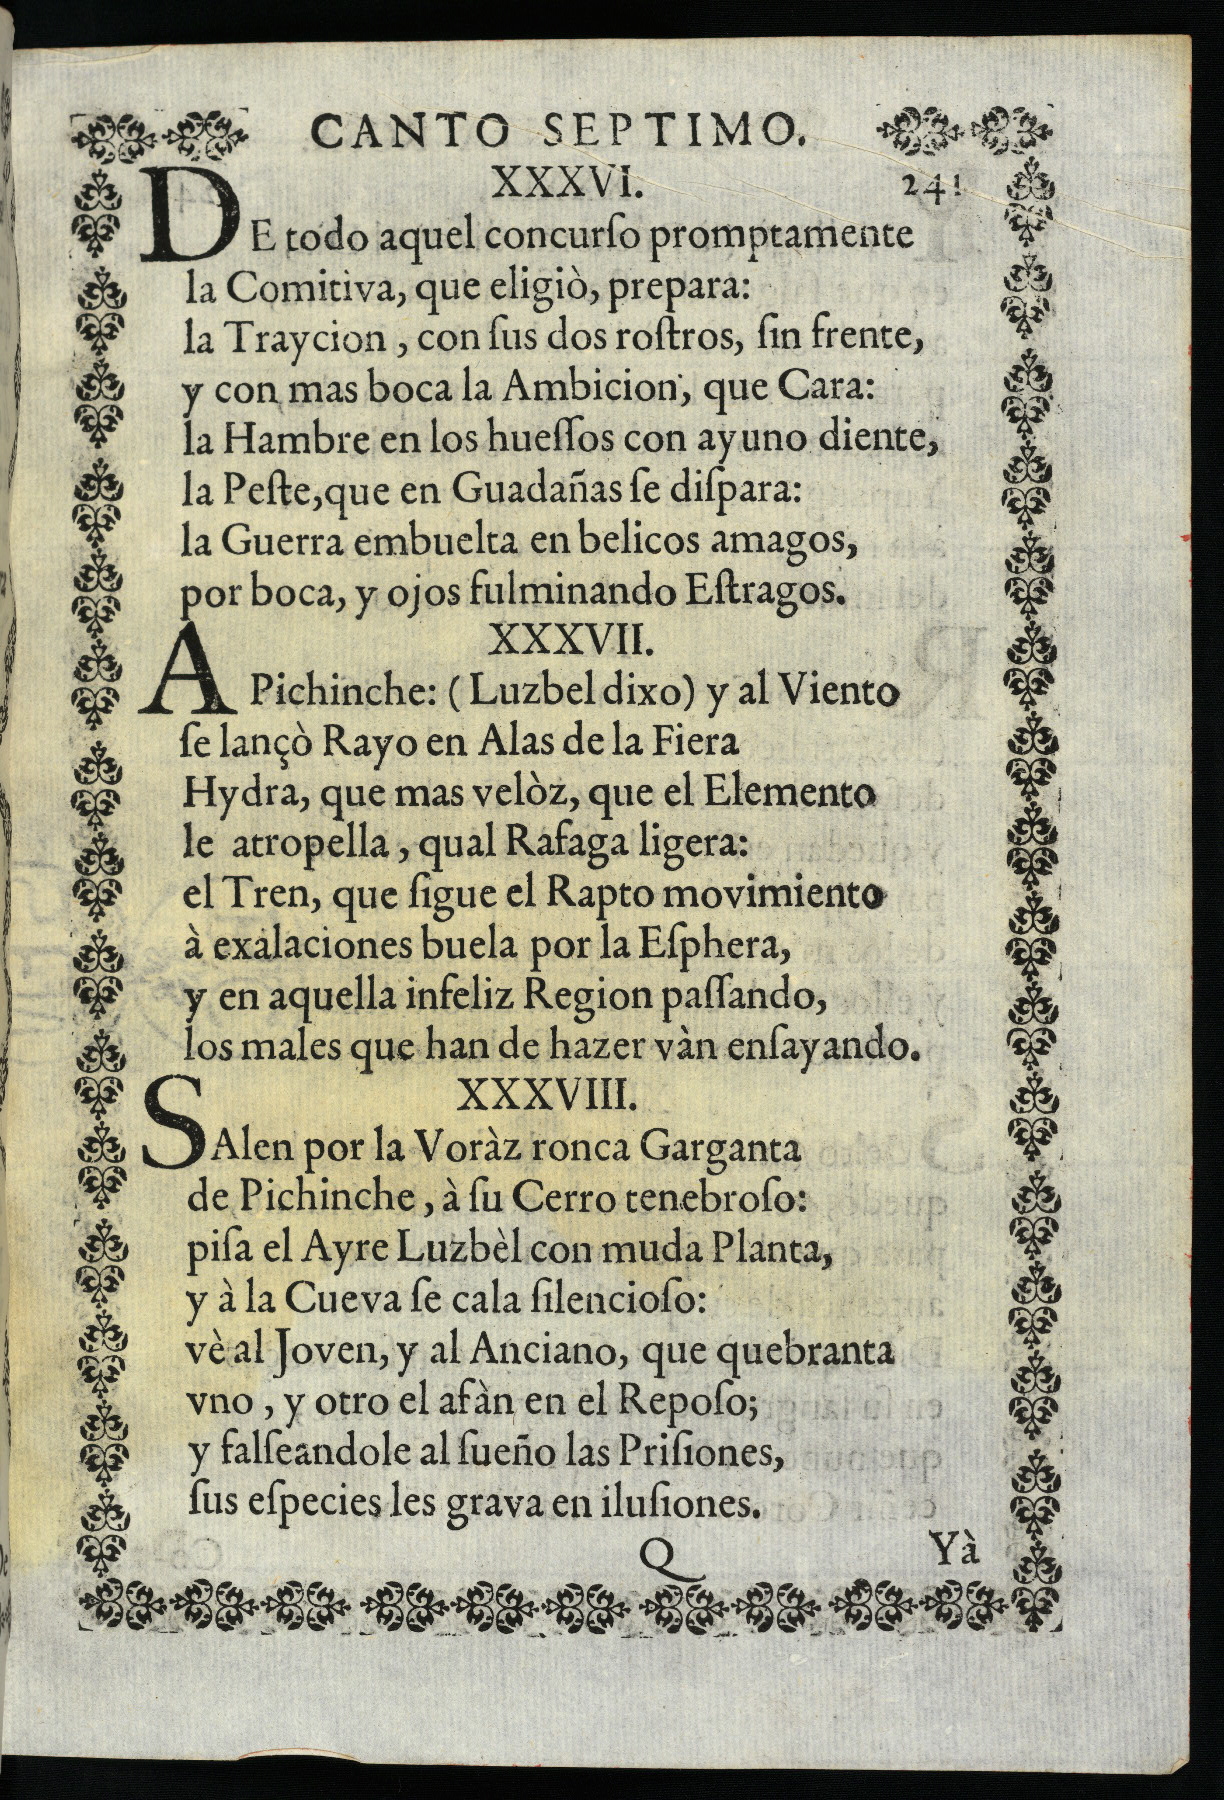 CANTO SEPTIMO.
XXXVI. 241
DE todo aquel concurſo promptamente
la Comitiva, que eligiò, prepara:
la Traycion, con ſus dos roſtros, ſin frente,
y con mas boca la Ambicion, que Cara:
la Hambre en los hueſſos con ayuno diente,
la Peſte, que en Guadañas ſe diſpara:
la Guerra embuelta en belicos amagos,
por boca, y ojos fulminando Eſtragos.
XXXVII.
A Pichinche: (Luzbel dixo) y al Viento
ſe lançò Rayo en Alas de la Fiera
Hydra, que mas velòz, que el Elemento
le atropella, qual Rafaga ligera:
el Tren, que ſigue el Rapto movimiento
à exalaciones buela por la Eſphera,
y en aquella infeliz Region paſſando,
los males que han de hazer vàn enſayando.
XXXVIII.
SAlen por la Voràz ronca Garganta
de Pichinche, à ſu Cerro tenebroſo:
piſa el Ayre Luzbèl con muda Planta,
y à la Cueva ſe cala ſilencioſo:
vè al Joven, y al Anciano, que quebranta
vno, y otro el afàn en el Repoſo;
y falſeandole al ſueño las Priſiones,
ſus eſpecies les grava en iluſiones.
Q Yà